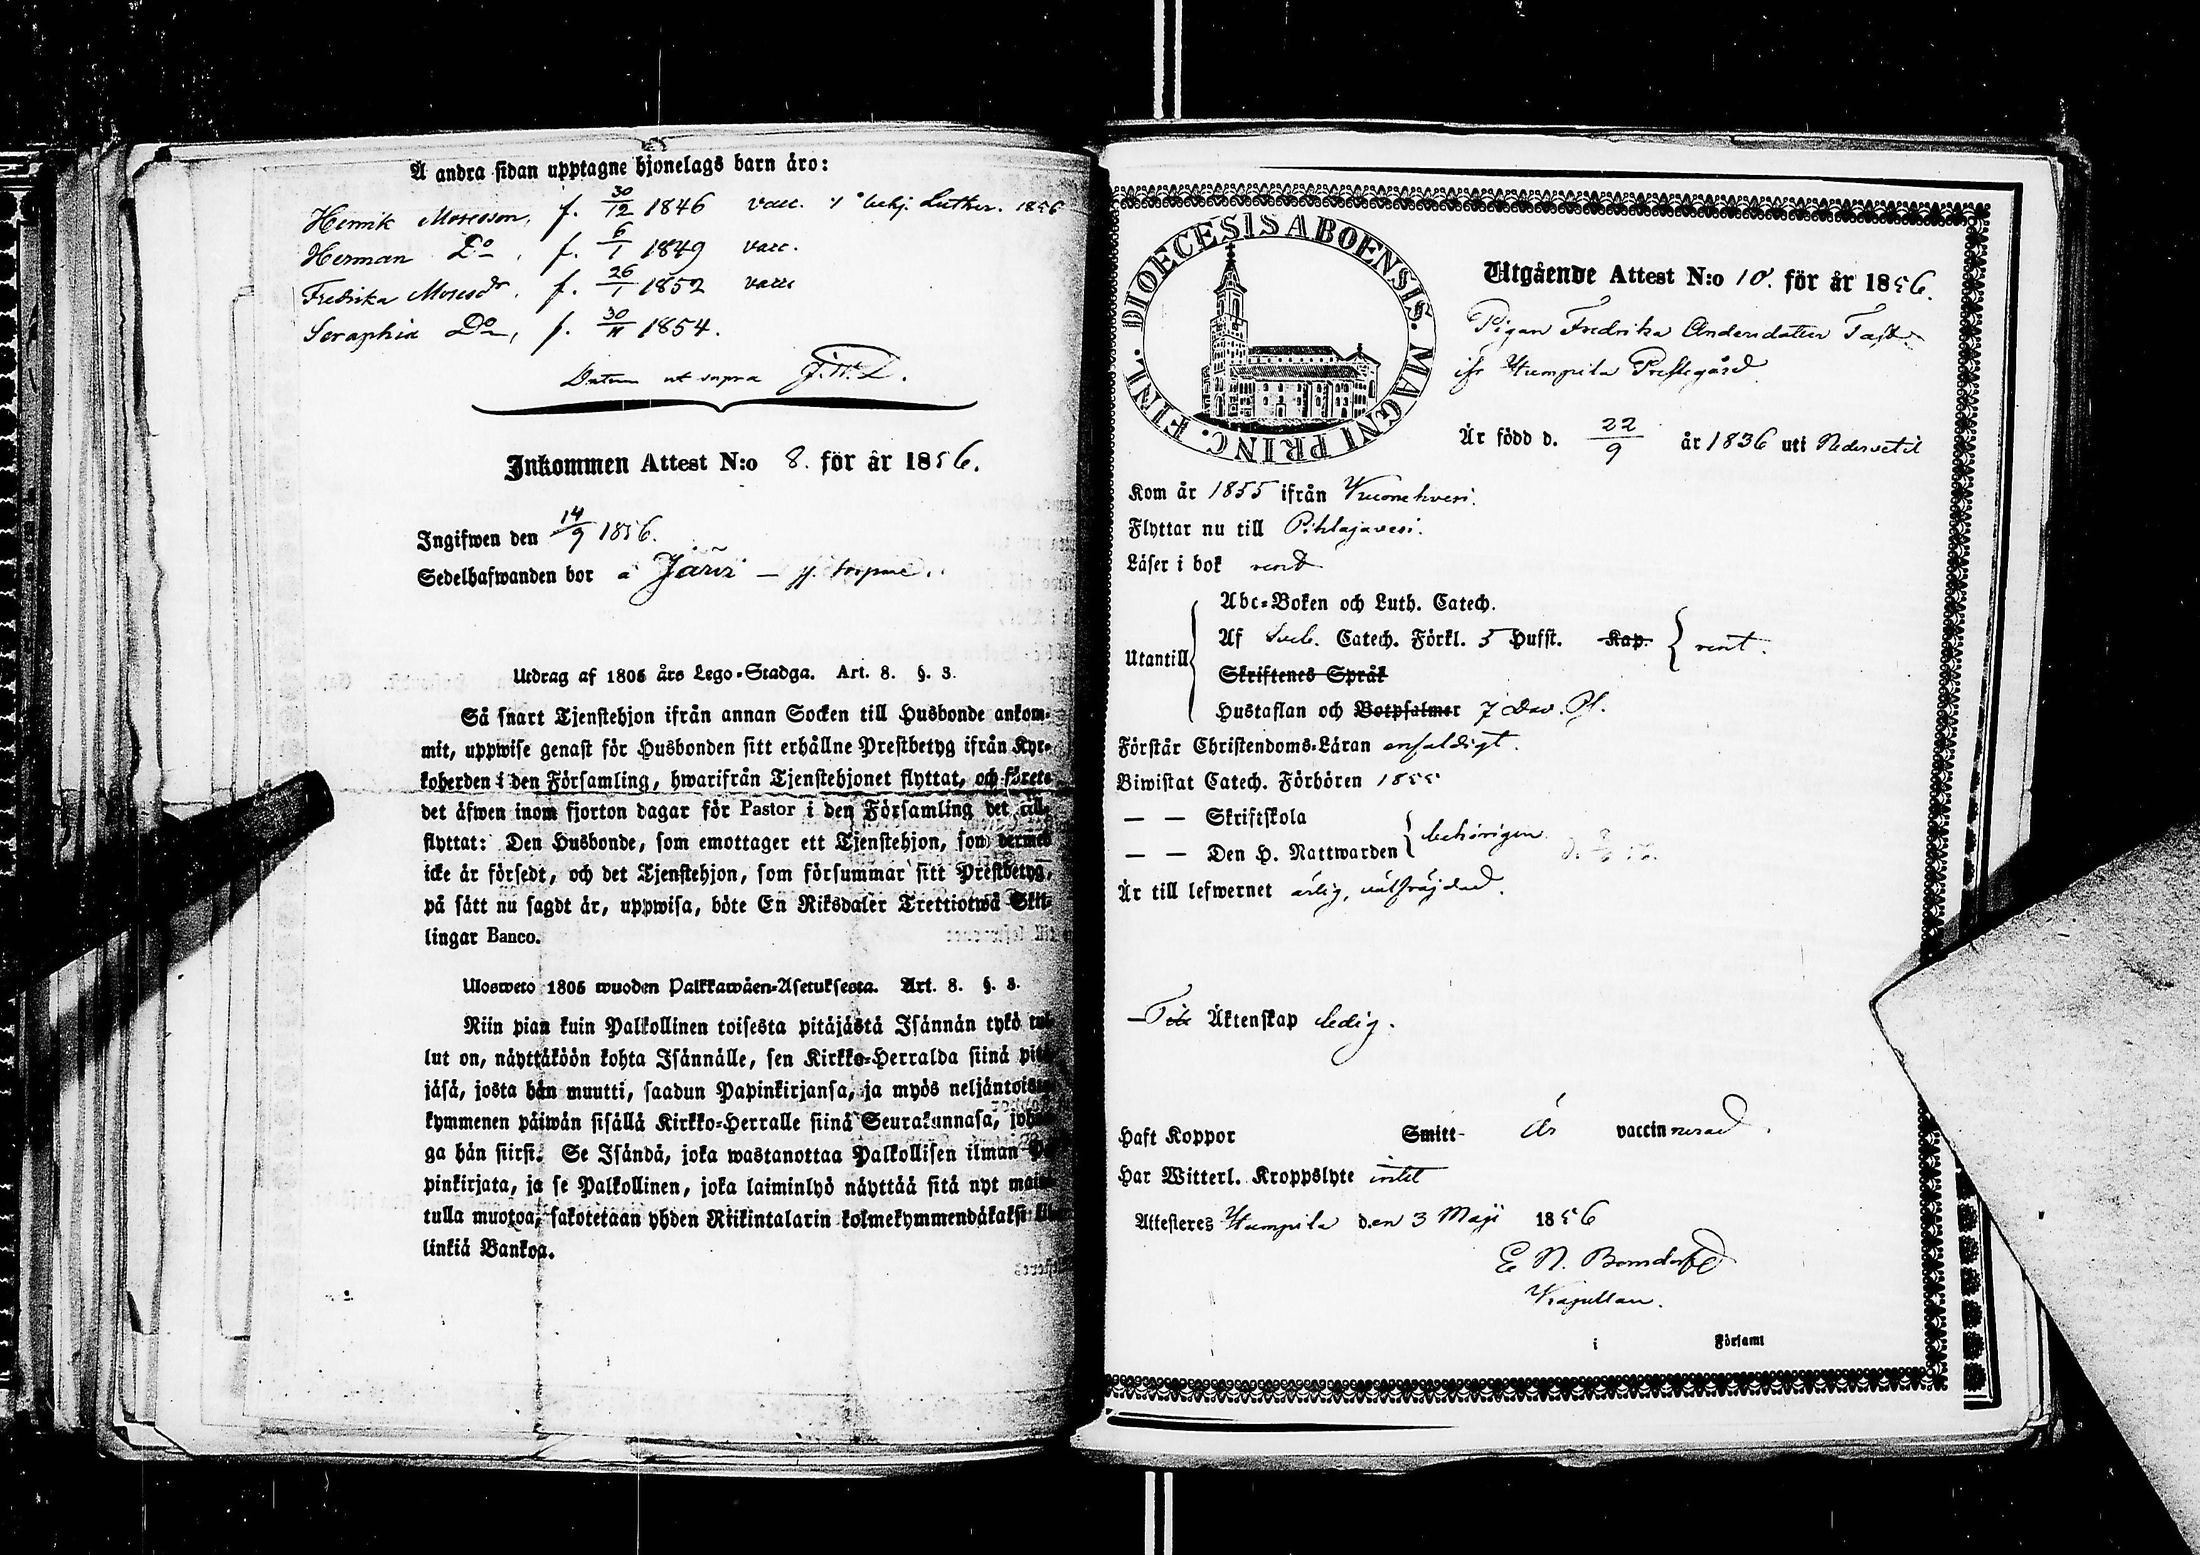 Å andra sidan upptagne hjonelags barn äro:
Henrik Mosesson, f. 30/12 1846 vacc. Luther. 1856
Herman Do, f. 6/1 1849 vacc.
Fredrika Mosesdr. f. 26/1 1852 vacc
Seraphia Do, f. 30/11 1854.
Datum ut supra
Inkommen Attest N:o 8. för år 1856.
Ingifwen den 14/9 1856.
Sedelhafwanden bor å Järvi
Utdrag af 1805 års Lego-Stadga. Art. 8. §. 3.
Så snart Tjenstehjon ifrån annan Socken till Husbonde ankom-
mit, uppwise genast för Husbonden sitt erhållne Prestbetyg ifrån Kyr-
koherden i den Församling, hwarifrån Tjenstehjonet flyttat, och förete
det äfwen inom fjorton dagar för Pastor i den Församling det till-
flyttat: Den Husbonde, som emottager ett Tjenstehjon, som dermed
icke är försedt, och det Tjenstehjon, som försummar sitt Prestbetyg,
på sätt nu sagdt är, uppwisa, böte En Riksdaler Trettiotwå Skil-
lingar Banco.
Ulosweto 1805 wuoden Palkkawäen-Asetuksesta. Art. 8. §. 3.
Niin pian kuin Palkollinen toisesta pitäjästä Isännän tykö tul-
lut on, näyttäköön kohta Isännälle, sen Kirkko-Herralda siinä pitä-
jäsä, josta hän muutti, saadun Papinkirjansa, ja myös neljäntoista
kymmenen päiwän sisällä Kirkko-Herralle siinä Seurakunnasa, johon-
ga hän siirsi. Se Isändä, joka wastanottaa Palkollisen ilman Pa-
pinkirjata, ja se Palkollinen, joka laiminlyö näyttää sitä nyt maini-
tulla muotoa, sakotetaan yhden Riikintalarin kolmekymmendäkaksi kil-
linkiä Bankoa.
DIOECESIS ABOENSIS. MAGNI PRINC. FINL.
Utgående Attest N:o 10. för år 1856.
Pigan Fredrika Andersdotter Tast
ifr Kumpila Prestegård
Är född d. 22/9 år 1836 uti Nedervetil
Kom år 1855 ifrån Kuorehvesi.
Flyttar nu till Pihlajavesi.
Läser i bok rent
Abc-Boken och Luth. Catech.
Utantill Af Sveb. Catech. Förkl. 5 Hufst. Kap. rent.
Skriftenes Språk
Hustaflan och Botpsalmer 7 Dav. Ps.
Förstår Christendoms-Läran enfaldigt.
Biwistat Catech. Förhören 1855
— — Skriftskola
— — Den H. Nattwarden behörigen
Är till lefwernet ärlig, välfräjdad.
Till Äktenskap ledig.
Haft Koppor Smitt- Är vaccinnerad.
Har Witterl. Kroppslyte intet
Attesteres Kumpila den 3 Maji 1856
E N. Bonsdorff
Kapellan.
i Församl